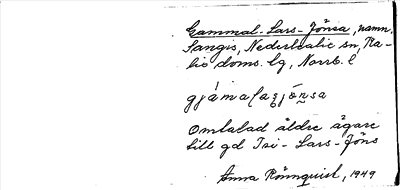 Gammal-Lars-Jönsa, namn,
Sangis, Nederkalix sn, Ka-
lix doms. lg, Norrb. l
gjámalaʒjónsa
Omtalad äldre ägare
till gd Isi-Lars-Jöns
Anna Rönnquist, 1949